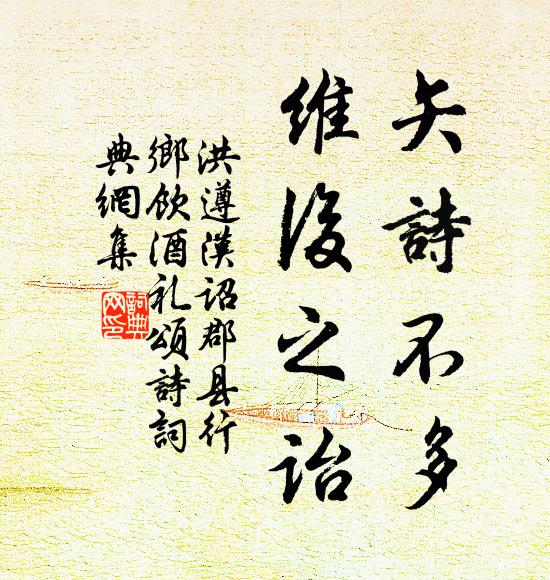 矢詩不多
維後之詒
洪遵漢詔郡县行
鄉飲酒礼頌詩詞
典網集
詞典
网印